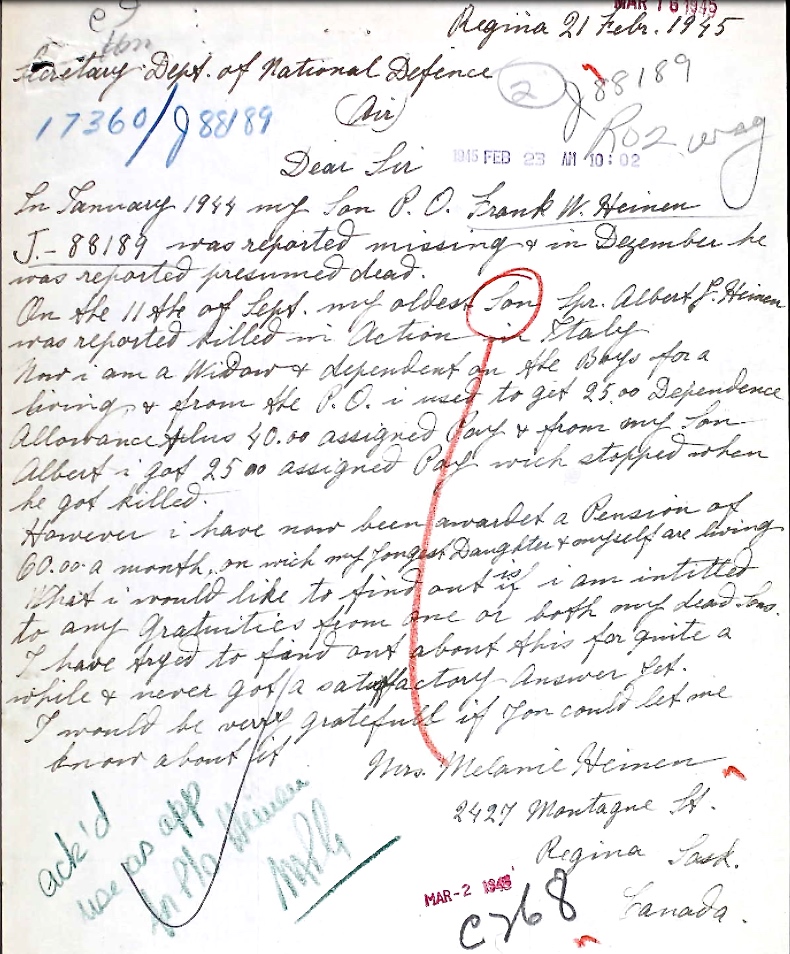 MAR 16 1945
Regina 21 Febr. 1945
Secretary Dept. of National Defence
(Air)
2
J88189
17360/J88189
R02
1945 FEB 23 AM 10:02
Dear Sir
In January 1944 my Son P.O. Frank W. Heinen
J.-88189 was reported missing & in Dezember he
was reported presumed dead.
On the 11the of Sept. my oldest Son Spr. Albert J. Heinen
was reported killed in Action in Italy
Now i am a Widow & dependent on the Boys for a
living, & from the P.O. i used to get 25.00 Dependence
Allowance plus 40.00 assigned Pay & from my Son
Albert i got 25.00 assigned Pay wich stopped when
he got killed.
However i have now been awardet a Pension of
60.00 a month, on wich my jongest Daughter & myself are living
What i would like to find out is if i am intitled
to any Gratuities from one or both my dead Sons.
I have tryed to find out about this for quite a
while & never got a satisfactory Answer yet.
I would be very gratefull if you could let me
know about it
Mrs. Melanie Heinen
2427 Montague St.
Regina Sask.
Canada.
ack'd
use as app
Heinen
MAR-2 1945
C768